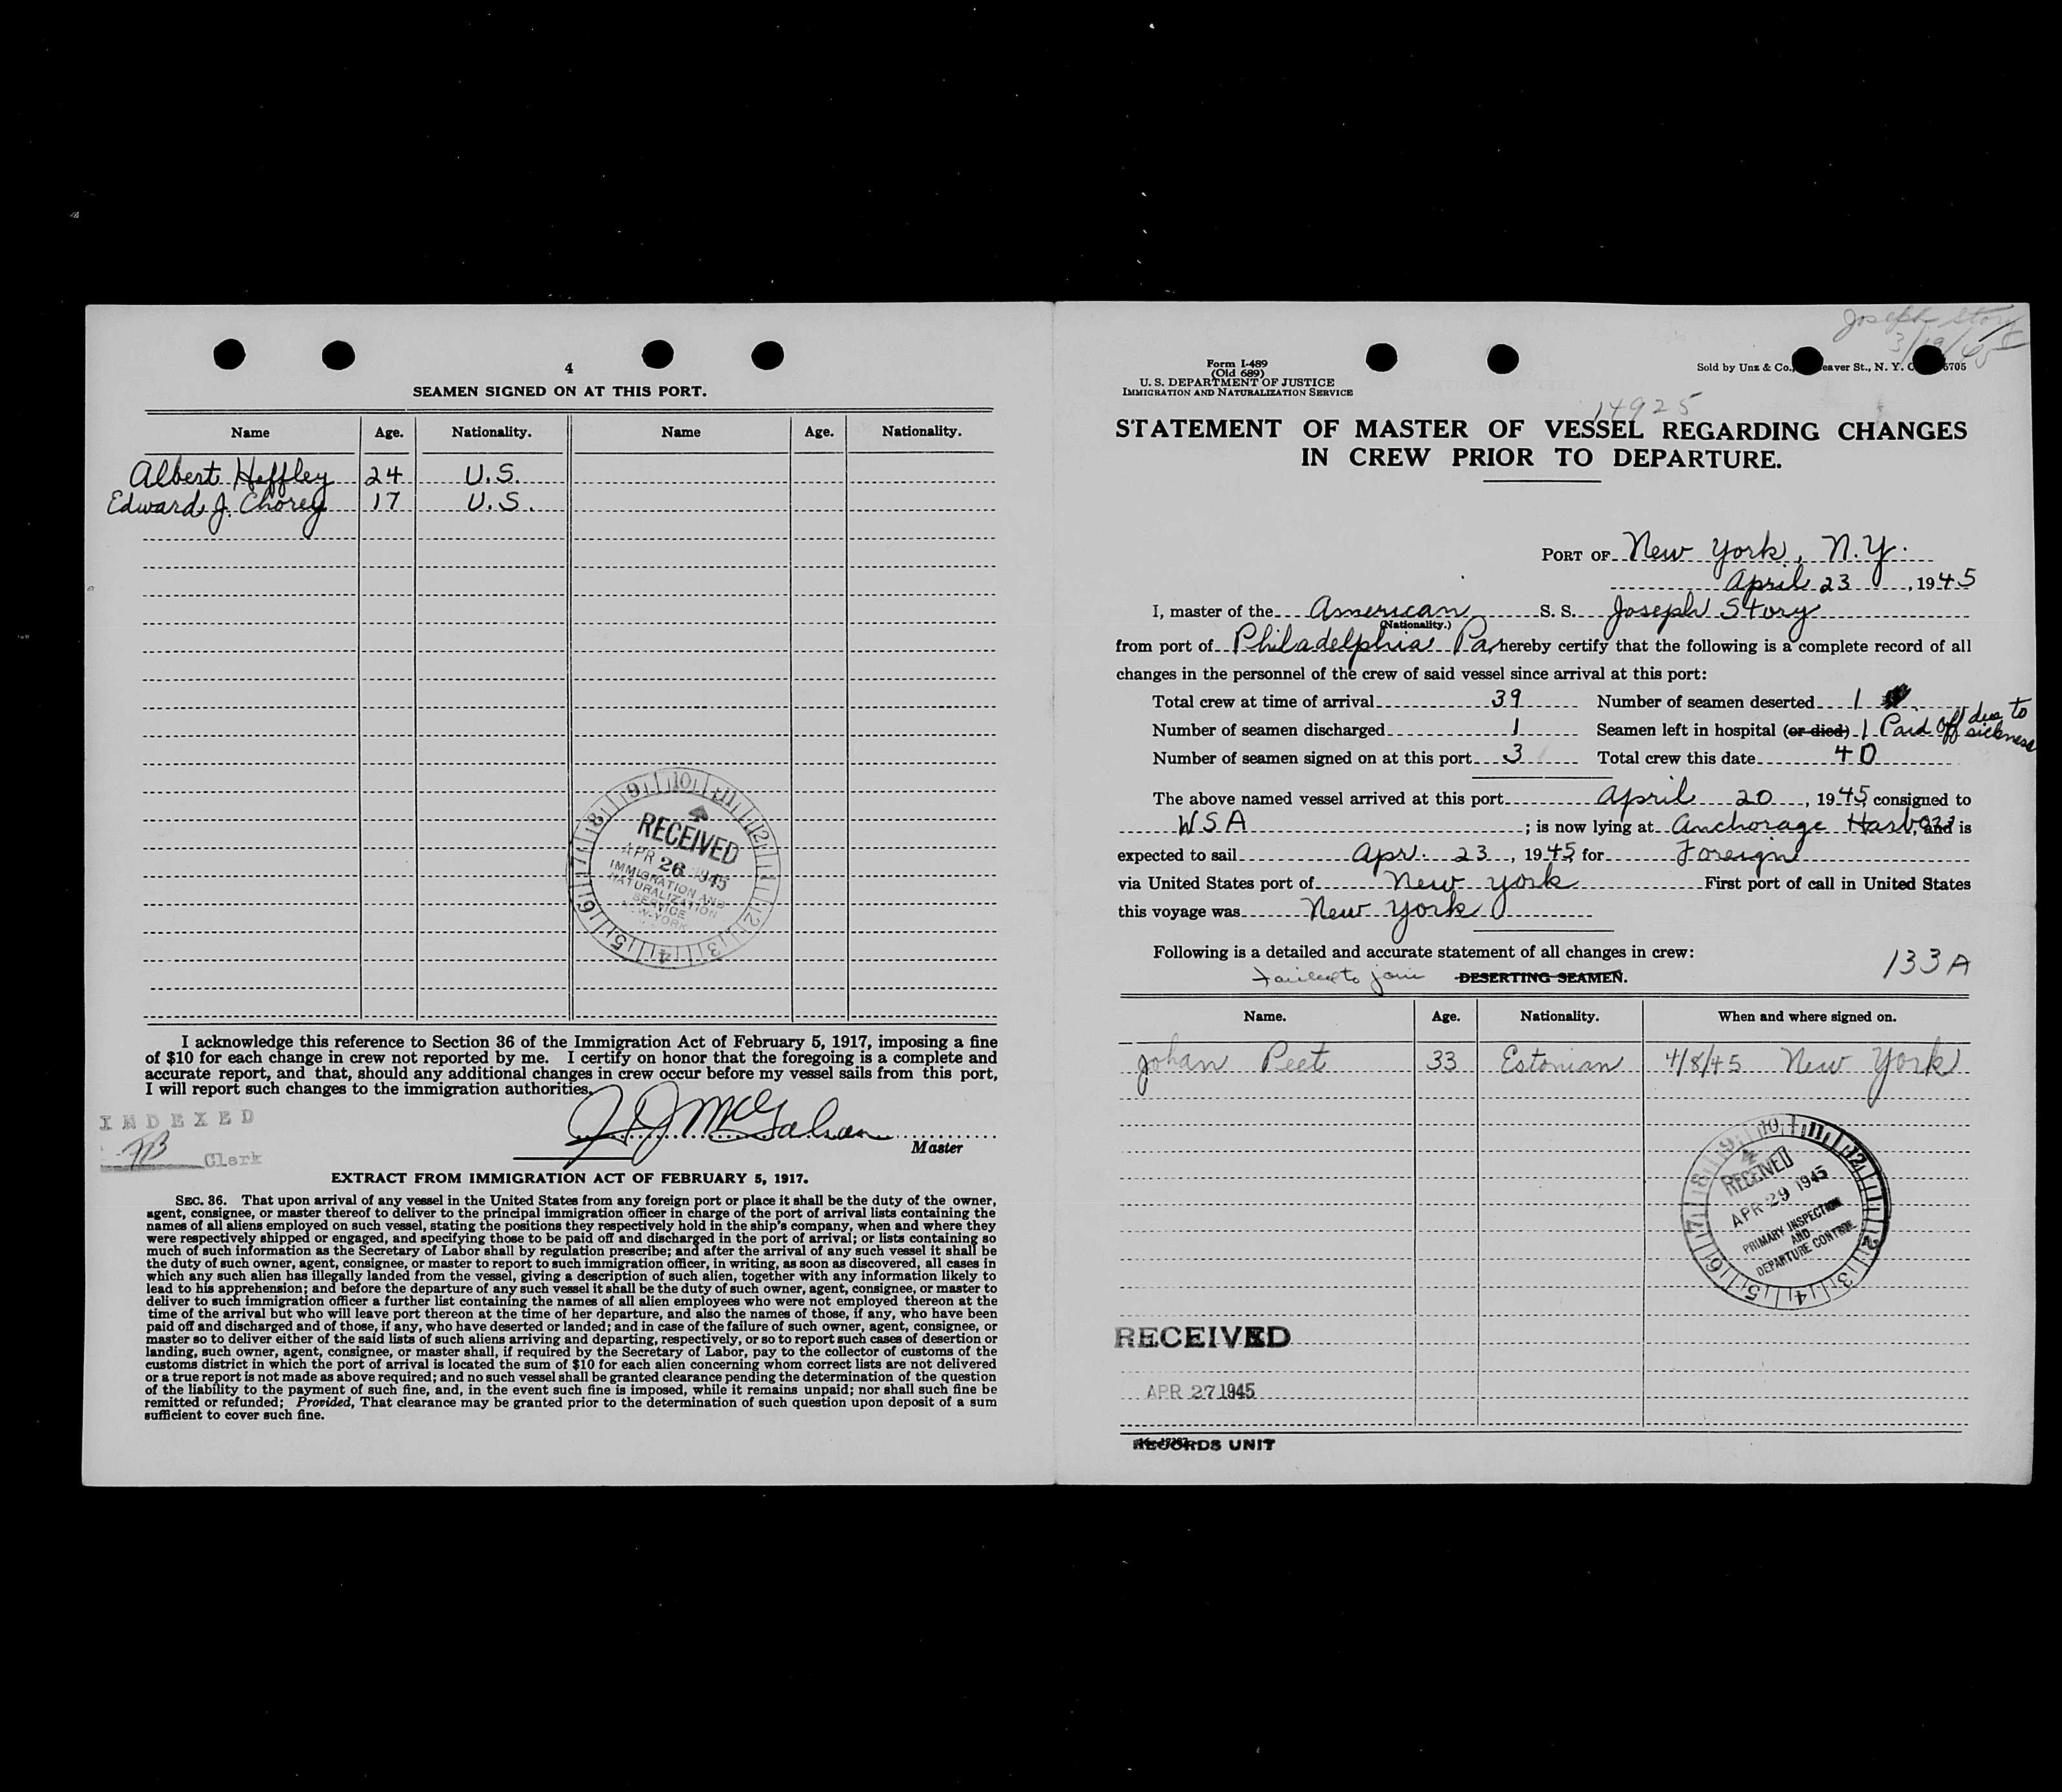 4
SEAMEN SIGNED ON AT THIS PORT.
Name Age. Nationality. Name Age. Nationality.
Albert Heffley 24 U.S.
Edward J. Chorey 17 U.S.
RECEIVED
APR 26 1945
IMMIGRATION AND
NATURALIZATION
SERVICE
NEW-YORK
I acknowledge this reference to Section 36 of the Immigration Act of February 5, 1917, imposing a fine
of $10 for each change in crew not reported by me. I certify on honor that the foregoing is a complete and
accurate report, and that, should any additional changes in crew occur before my vessel sails from this port,
I will report such changes to the immigration authorities.
INDEXED
Clerk
J J McGahan
Master
EXTRACT FROM IMMIGRATION ACT OF FEBRUARY 5, 1917.
SEC. 36. That upon arrival of any vessel in the United States from any foreign port or place it shall be the duty of the owner,
agent, consignee, or master thereof to deliver to the principal immigration officer in charge of the port of arrival lists containing the
names of all aliens employed on such vessel, stating the positions they respectively hold in the ship's company, when and where they
were respectively shipped or engaged, and specifying those to be paid off and discharged in the port of arrival; or lists containing so
much of such information as the Secretary of Labor shall by regulation prescribe; and after the arrival of any such vessel it shall be
the duty of such owner, agent, consignee, or master to report to such immigration officer, in writing, as soon as discovered, all cases in
which any such alien has illegally landed from the vessel, giving a description of such alien, together with any information likely to
lead to his apprehension; and before the departure of any such vessel it shall be the duty of such owner, agent, consignee, or master to
deliver to such immigration officer a further list containing the names of all alien employees who were not employed thereon at the
time of the arrival but who will leave port thereon at the time of her departure, and also the names of those, if any, who have been
paid off and discharged and of those, if any, who have deserted or landed; and in case of the failure of such owner, agent, consignee, or
master so to deliver either of the said lists of such aliens arriving and departing, respectively, or so to report such cases of desertion or
landing, such owner, agent, consignee, or master shall, if required by the Secretary of Labor, pay to the collector of customs of the
customs district in which the port of arrival is located the sum of $10 for each alien concerning whom correct lists are not delivered
or a true report is not made as above required; and no such vessel shall be granted clearance pending the determination of the question
of the liability to the payment of such fine, and, in the event such fine is imposed, while it remains unpaid; nor shall such fine be
remitted or refunded; Provided, That clearance may be granted prior to the determination of such question upon deposit of a sum
sufficient to cover such fine.
Joseph Story
3/19/45
Form I-489
(Old 689)
U. S. DEPARTMENT OF JUSTICE
IMMIGRATION AND NATURALIZATION SERVICE
Sold by Unz & Co., eaver St., N. Y. C 5705
14925
STATEMENT OF MASTER OF VESSEL REGARDING CHANGES
IN CREW PRIOR TO DEPARTURE.
PORT OF New York, N.Y.
April 23, 1945
I, master of the American S. S. Joseph Story
(Nationality.)
from port of Philadelphia Pa hereby certify that the following is a complete record of all
changes in the personnel of the crew of said vessel since arrival at this port:
Total crew at time of arrival 39 Number of seamen deserted 1
Number of seamen discharged 1 Seamen left in hospital (or died) 1 Paid off due to sickness
Number of seamen signed on at this port 3 Total crew this date 40
The above named vessel arrived at this port April 20, 1945 consigned to
WSA ; is now lying at Anchorage Harbor, and is
expected to sail Apr. 23, 1945 for Foreign
via United States port of New York First port of call in United States
this voyage was New York
Following is a detailed and accurate statement of all changes in crew:
133A
Failed to join DESERTING SEAMEN.
Name. Age. Nationality. When and where signed on.
Johan Peet 33 Estonian 4/8/45 New York
RECEIVED
APR 29 1945
PRIMARY INSPECTION
AND
DEPARTURE CONTROL
RECEIVED
APR 27 1945
RECORDS UNIT